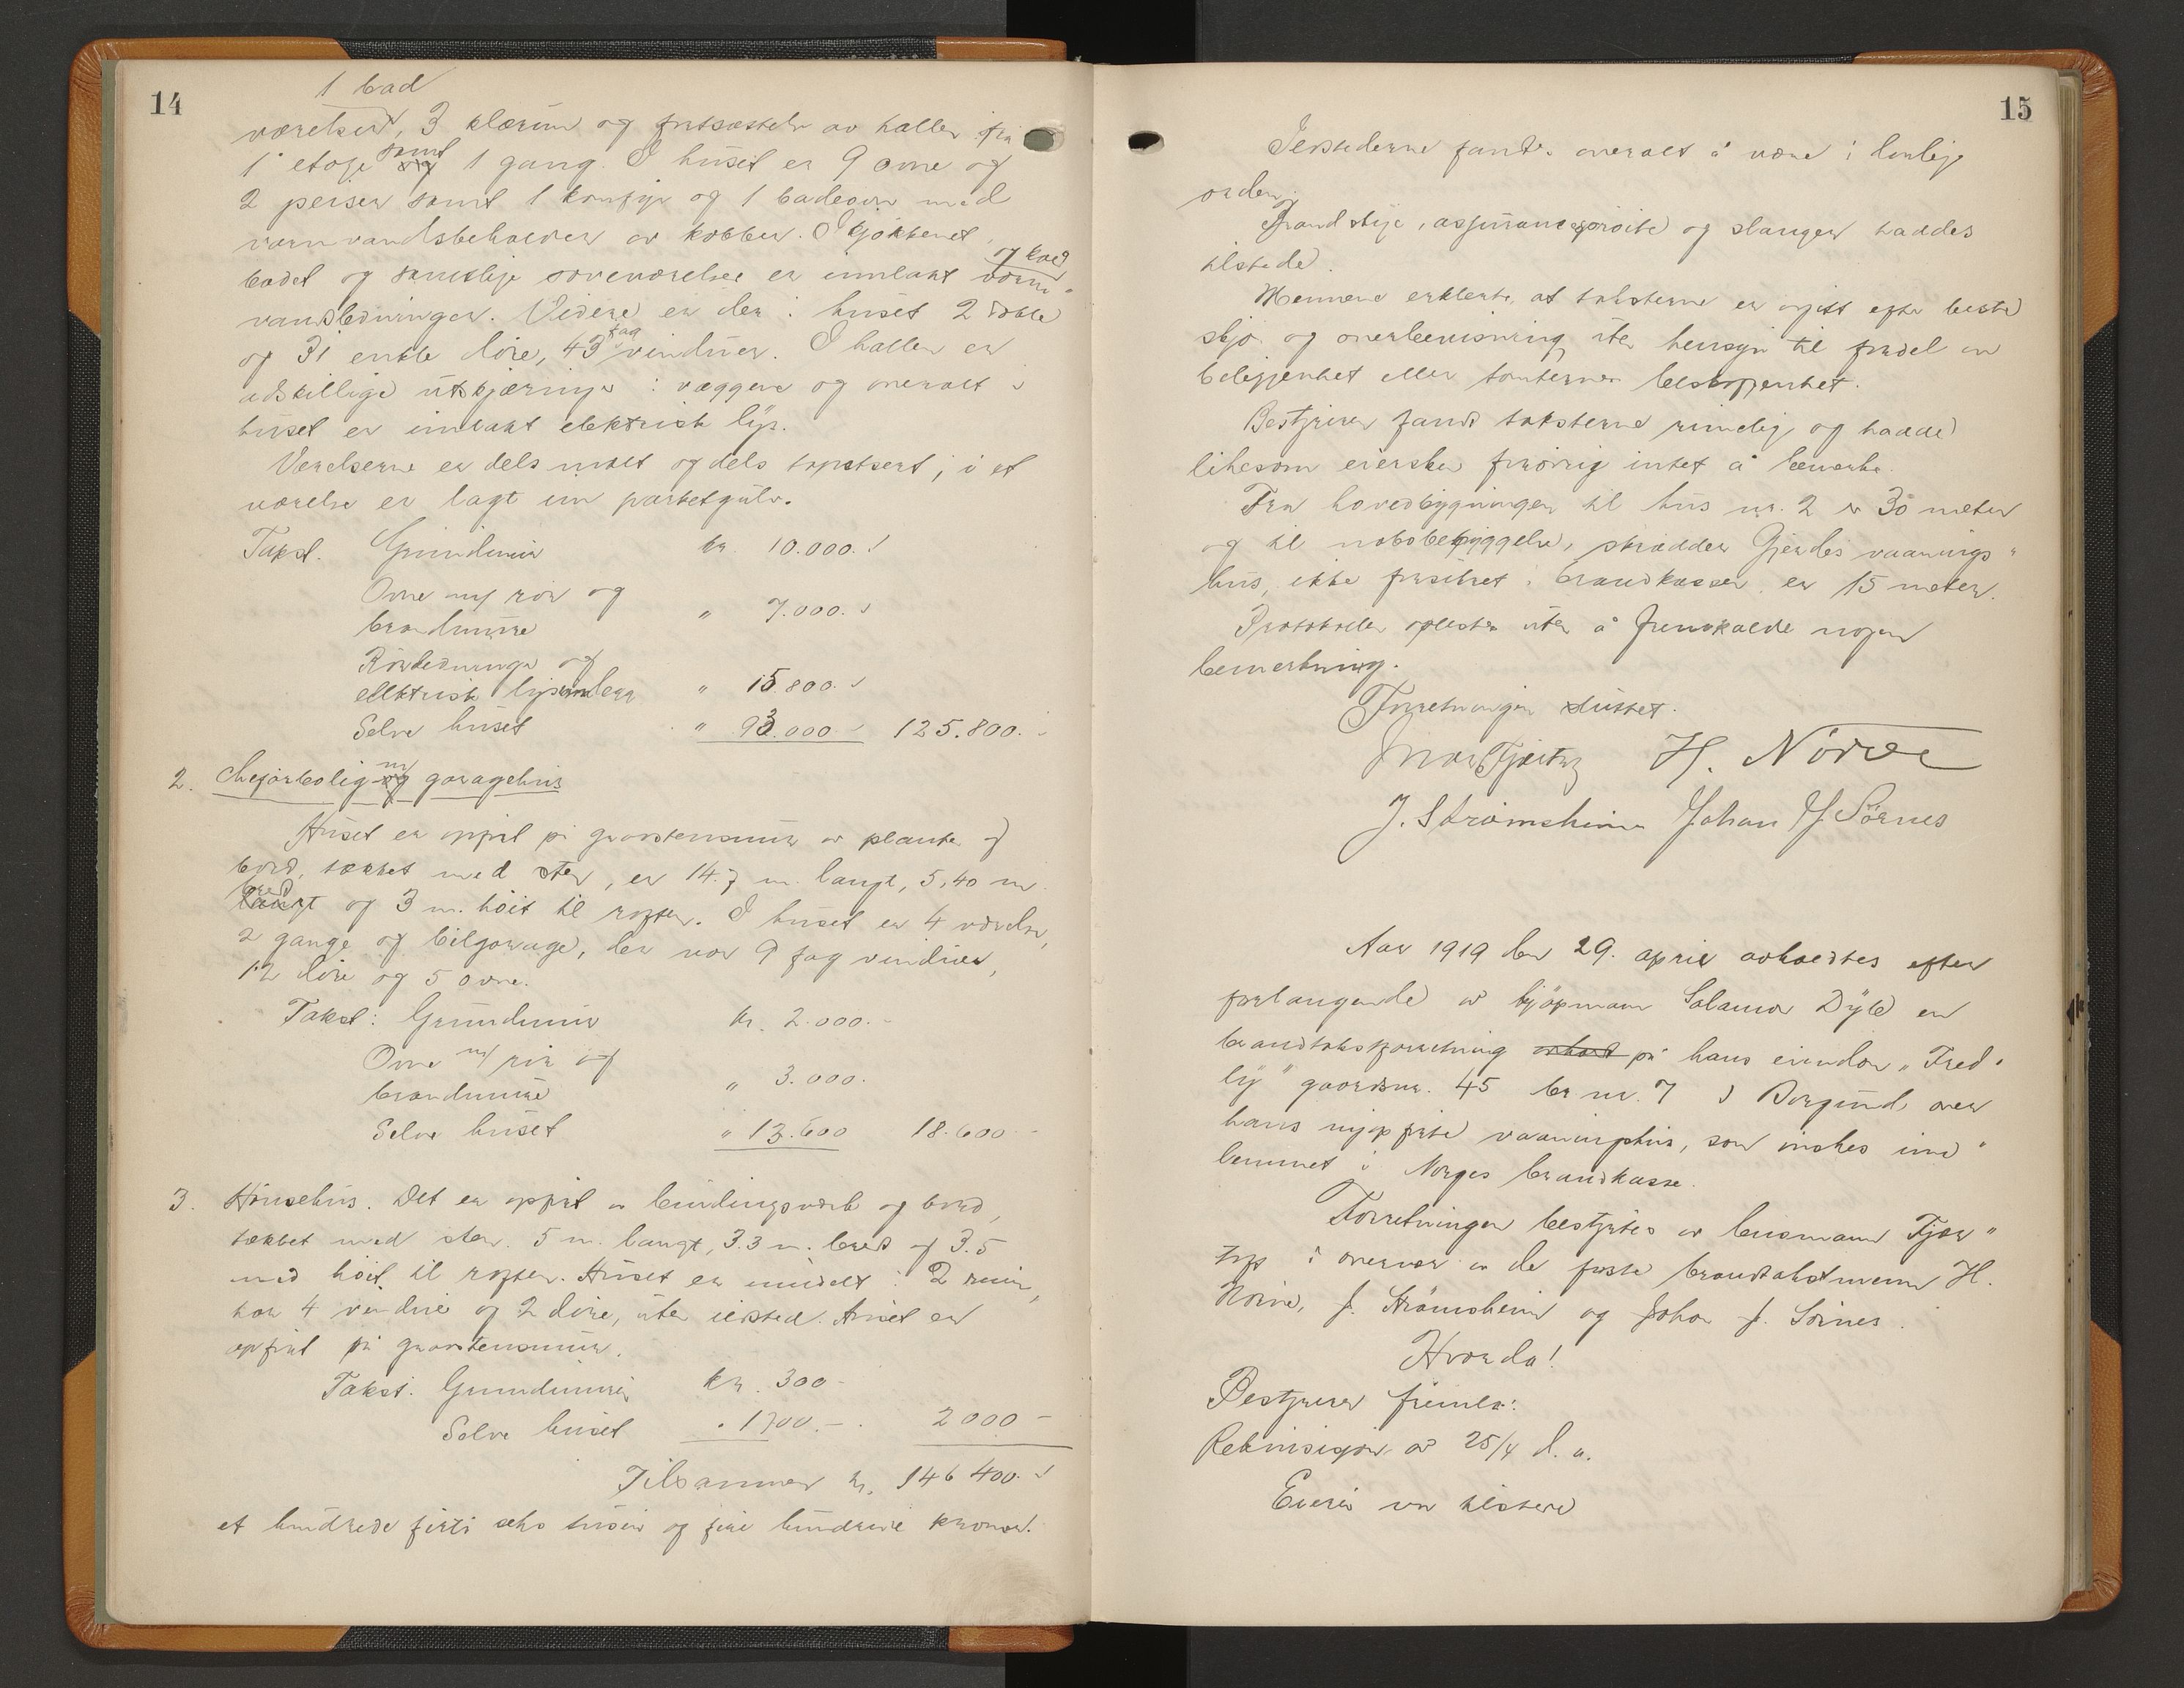 14
1 bad
værelser, 3 klærum og fortsættelse av hallen fra
1' etage samt 1 gang. I huset er 9 ovne og
2 peiser samt 1 komfyr og 1 badeovn med
varmvandsbeholder av kobber. I kjøkkenet,
badet og samtlige soveværelser er innlakt varm- og kold
vandsledninger. Videre er der i huset 2 doble
og 31 enkle døre, 43 fag vinduer. I hallen er
adskillige utskjæringer i væggene og overalt i
huset er innlakt elektrisk lys.
Værelserne er dels malt og dels tapetsert, i et
værelse er lagt inn parketgulv.
Takst. Grundmur kr. 10.000.-
Ovne m/ rør og
brandmure " 7.000.-
Rørledninger og
elektrisk lysanlegg " 15.800.-
Selve huset " 93.000.- 125.800.-
2. Chejørbolig m/ garagehus
Huset er opført på graastensmur av planker og
bord, tækket med sten, er 14.7 m. langt, 5,40 m.
bredt og 3 m. høit til røsten. I huset er 4 værelser,
2 gange og bilgarage, der var 9 fag vinduer,
12 døre og 5 ovne.
Takst: Grundmur kr. 2.000.-
Ovne m/ rør og
brandmure " 3.000.
Selve huset " 13.600 18.600.-
3. Hønsehus. Det er opført av bindingsverk og bord,
tækket med sten. 5 m. langt, 3.3 m. bred og 3.5
med høit til røsten. Huset er inndelt i 2 rum,
har 4 vinduer og 2 døre, uten ildsted. Huset er
opført på graastensmur.
Takst. Grundmur kr. 300-
Selve huset " 1700.- 2000-
Tilsammen kr. 146 400.-
et hundrede førti seks tusin og fire hundrede kroner.
15
Ildstederne fandtes overalt å være i lovlig
orden.
Brandstige, assuransesprøite og slanger haddes
tilstede.
Mennene erklerte, at taksterne er avgitt efter beste
skjøn og overbevisning uten hensyn til fordel av
beliggenhet eller tomternes beskaffenhet.
Bestyreren fandt taksterne rimelig og hadde
likesom eiersken forøvrig intet å bemerke.
Fra hovedbygningen til hus nr. 2 er 30 meter
og til nabobebyggelse, skrædder Gjerdes vaanings-
hus, ikke forsikret i brandkassen er 15 meter.
Protokollen oplestes uten å fremkalde nogen
bemerkning.
Forretningen sluttet.
Fjørtoft H. Nørve
J. Strømsheim Johan J Sørnes
Aar 1919 den 29. april avholdtes efter
forlangende av kjøpmann Salamon Dyb en
brandtakstforretning på hans eiendom "Fred-
ly" gaardsnr. 45 br nr. 7 i Borgund over
hans nyopførte vaaningshus, som ønskes inn-
lemmet i Norges brandkasse.
Forretningen bestyrtes av lensmann Fjør-
toft i overvær av de faste brandtakstmenn H.
Nørve, J. Strømsheim og Johan J. Sørnes.
Hvorda!
Bestyreren fremla:
Rekvisisjon av 25/4 d. a.
Eieren var tilstede